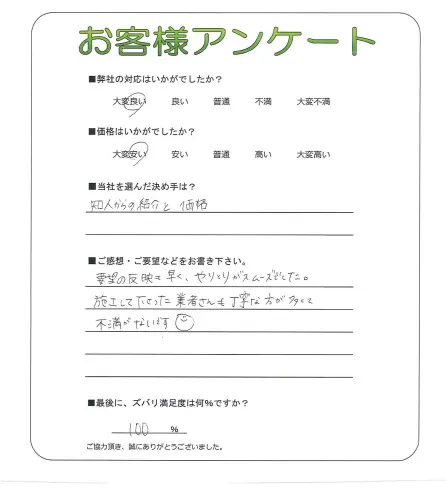 お客様アンケート
■弊社の対応はいかがでしたか？
大変良い 良い 普通 不満 大変不満
■価格はいかがでしたか？
大変安い 安い 普通 高い 大変高い
■当社を選んだ決め手は？
知人からの紹介と 価格
■ご感想・ご要望などをお書き下さい。
要望の反映も早く、やりとりがスムーズでした。
施工して下さった業者さんも丁寧な方が多くて
不満がないです
■最後に、ズバリ満足度は何％ですか？
100 %
ご協力頂き、誠にありがとうございました。